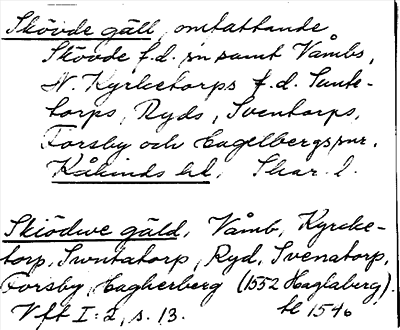 Skövde gäll, omfattande
Skövde f.d. sn samt Våmbs,
N. Kyrketorps f.d. Sunte-
torps, Ryds, Sventorps,
Forsby och Hagelbergs snr.
Kåkinds hd, Skar. l.
Skiödwe gäld, Våmb, Kyrcke-
torp, Swntatorp, Ryd, Svenatorp,
Forsby, Hagherberg (1552 Haglaberg).
Vft I:2, s. 13. tl 1546